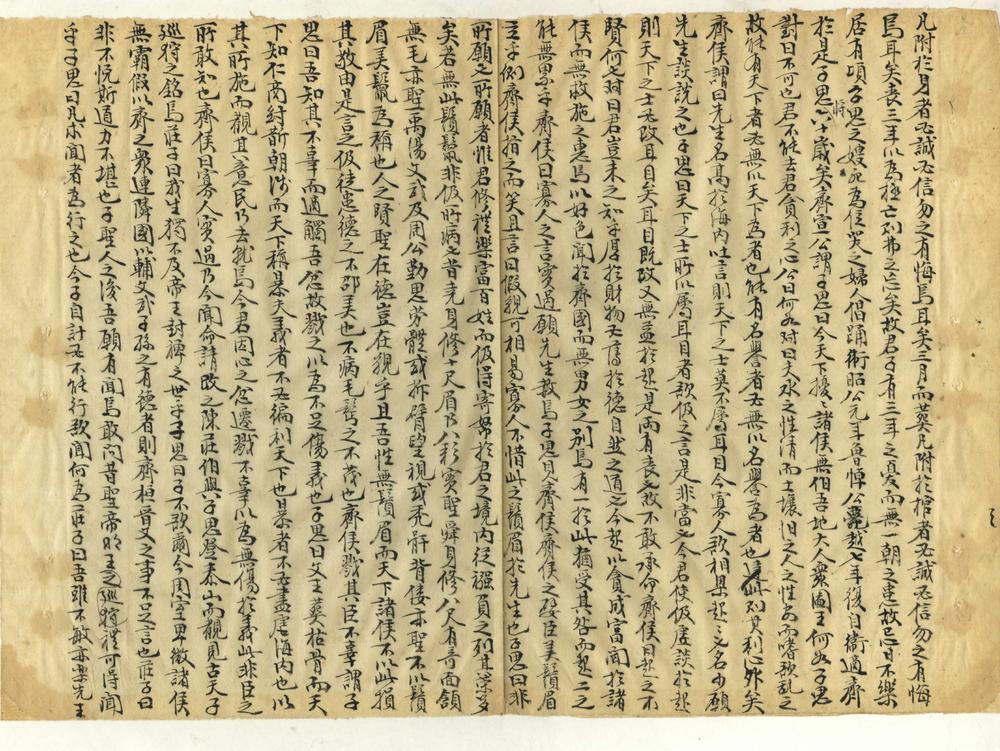 凡附於身者必誠必信勿之有悔焉耳矣三月而葬凡附於棺者必誠必信勿之有悔
焉耳矣喪三年以為極亡則弗之忘矣故君子有三年之憂而無一朝之患故忌日不樂
居有頃子思之嫂死為位哭之婦人倡踊衛昭公元年魯悼公薨越七年復自衛適齊
於是子思八十歲矣齊宣公謂子思曰今天下擾諸侯無伯吾地大人衆圖王何如子思
對曰不可也君不能去君貪利之心公曰何如對曰夫水之性清而土壤汨之人之性安而嗜欲亂之
故能有天下者必無以天下為者也能有名譽者必無以名譽為者也此則其利心外矣
齊侯謂曰先生名高於海內吐言則天下之士莫不屬耳目今寡人欲相梁起之名少願
先生談說之也子思曰天下之士所以屬耳目者欲伋之言是非當也今君使伋虛談於起
則天下之士必改耳目矣耳目既改又無益於起是兩有喪也故不敢承命齊侯曰起之不
賢何也對曰君豈未之知乎厚於財物必薄於德自然之道也今起以貪成富聞於諸
侯而無救施之惠焉以好色聞於齊國而無男女之別焉有一於此猶受其咎而起二之
能無累乎齊侯曰寡人之言實過願先生赦焉子思見齊侯齊侯之嬖臣美鬚眉
立乎側齊侯指之而笑且言曰假貌可相易寡人不惜此之鬚眉於先生也子思曰非
所願也所願者惟君修禮樂富百姓而伋得寄帑於君之境內從襁負之列其榮多
矣若無此鬚鬣非伋所病也昔堯身修十尺眉乃八彩實聖舜身修八尺有奇面頷
無毛亦聖禹湯文武及周公勤思勞體或折臂望視或禿骭背僂亦聖不以鬚
眉美鬣為稱也人之賢聖在德豈在貌乎且吾性無鬚眉而天下諸侯不以此損
其敬由是言之伋徒患德之不邵美也不病毛鬢之不茂也齊侯戮其臣不辜謂子
思曰吾知其不辜而適觸吾忿故戮之以為不足傷義也子思曰文王葬枯骨而天
下知仁商紂斮朝涉而天下稱暴夫義者不必徧利天下也暴者不必盡虐海內也以
其所施而觀其意民乃去就焉今君因心之忿遷戮不辜以為無傷於義此非臣之
所敢知也齊侯曰寡人實過乃今聞命請改之陳莊伯與子思登泰山而觀見古天子
巡狩之銘焉莊子曰我生獨不及帝王封禪之世乎子思曰子不欲爾今周室卑微諸侯
無霸假以齊之衆連隣國以輔文武子孫之有德者則齊桓晉文之事不足言也莊子曰
非不悅斯道力不堪也子聖人之後吾願有聞焉敢問昔聖帝明王之巡狩禮可得聞
乎子思曰凡求聞者為行之也今子自計必不能行欲聞何為莊子曰吾雖不敏亦樂先王